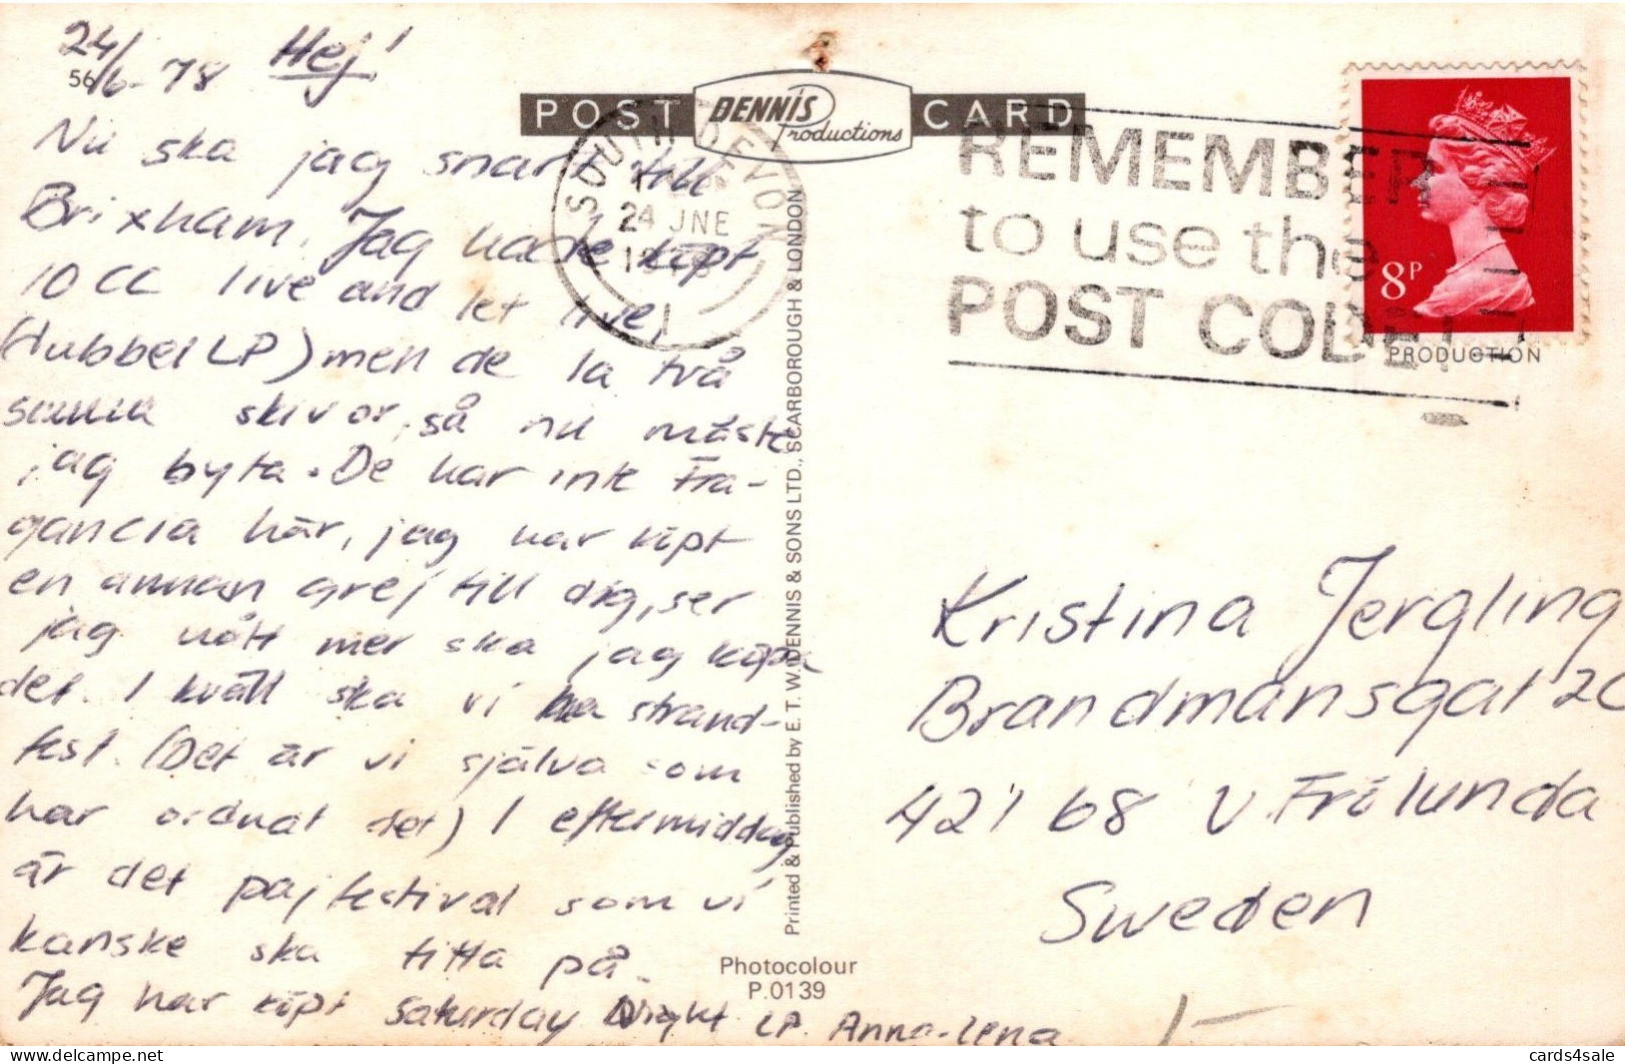 24/6-78 Hej!
56
Nu ska jag snart till
Brixham. Jag hade köpt
10 CC live and let live,
(dubbel LP) men de la två
samma skivor, så nu måste
jag byta. De har inte Fra-
gancia här, jag har köpt
en annan grej till dig, ser
jag nått mer ska jag köpa
det. I kväll ska vi ha strand-
fest. (Det är vi själva som
har ordnat det) I eftermiddag
är det pajfestival som vi
kanske ska titta på.
Jag har köpt Saturday Night LP. Anna-Lena
POST DENNIS Productions CARD
SOUTH DEVON
24 JNE
REMEMBER
to use the
POST CODE
8P
PRODUCTION
Printed & Published by E. T. W. DENNIS & SONS LTD., SCARBOROUGH & LONDON
Kristina Jergling
Brandmansgat 20
421 68 V. Frölunda
Sweden
Photocolour
P.0139
cards4sale